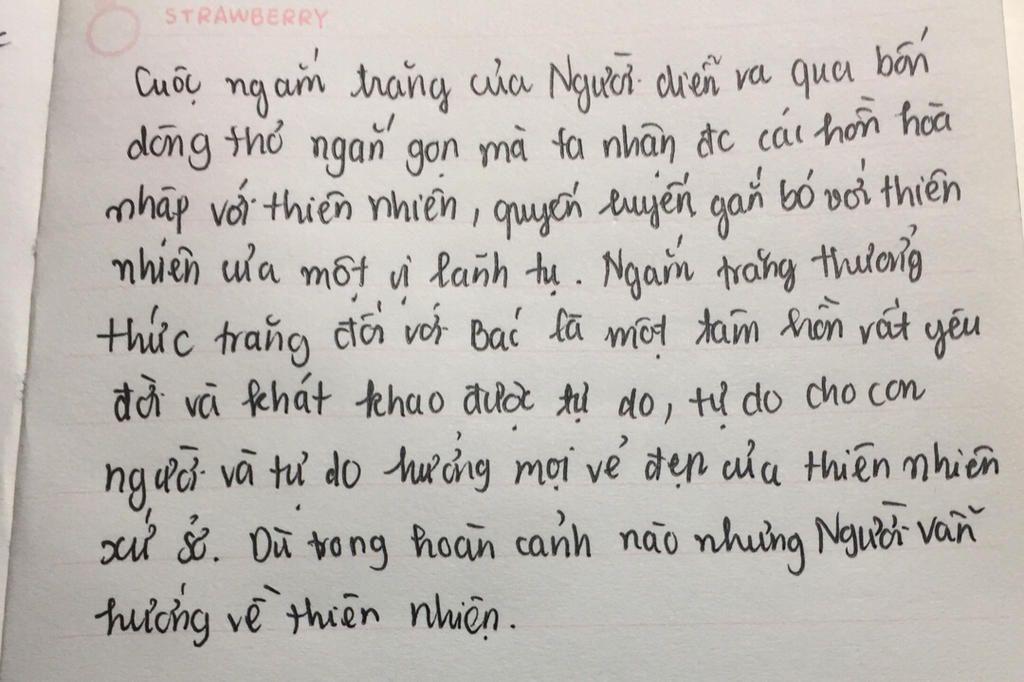 STRAWBERRY
Cuộc ngắm trăng của Người diễn ra qua bốn
dòng thơ ngắn gọn mà ta nhận đc cái hồn hoà
nhập với thiên nhiên, quyến luyến, gắn bó với thiên
nhiên của một vị lãnh tụ. Ngắm trăng thưởng
thức trăng đối với Bác là một tâm hồn rất yêu
đời và khát khao được tự do, tự do cho con
người và tự do hưởng mọi vẻ đẹp của thiên nhiên
xứ sở. Dù trong hoàn cảnh nào nhưng Người vẫn
hướng về thiên nhiên.